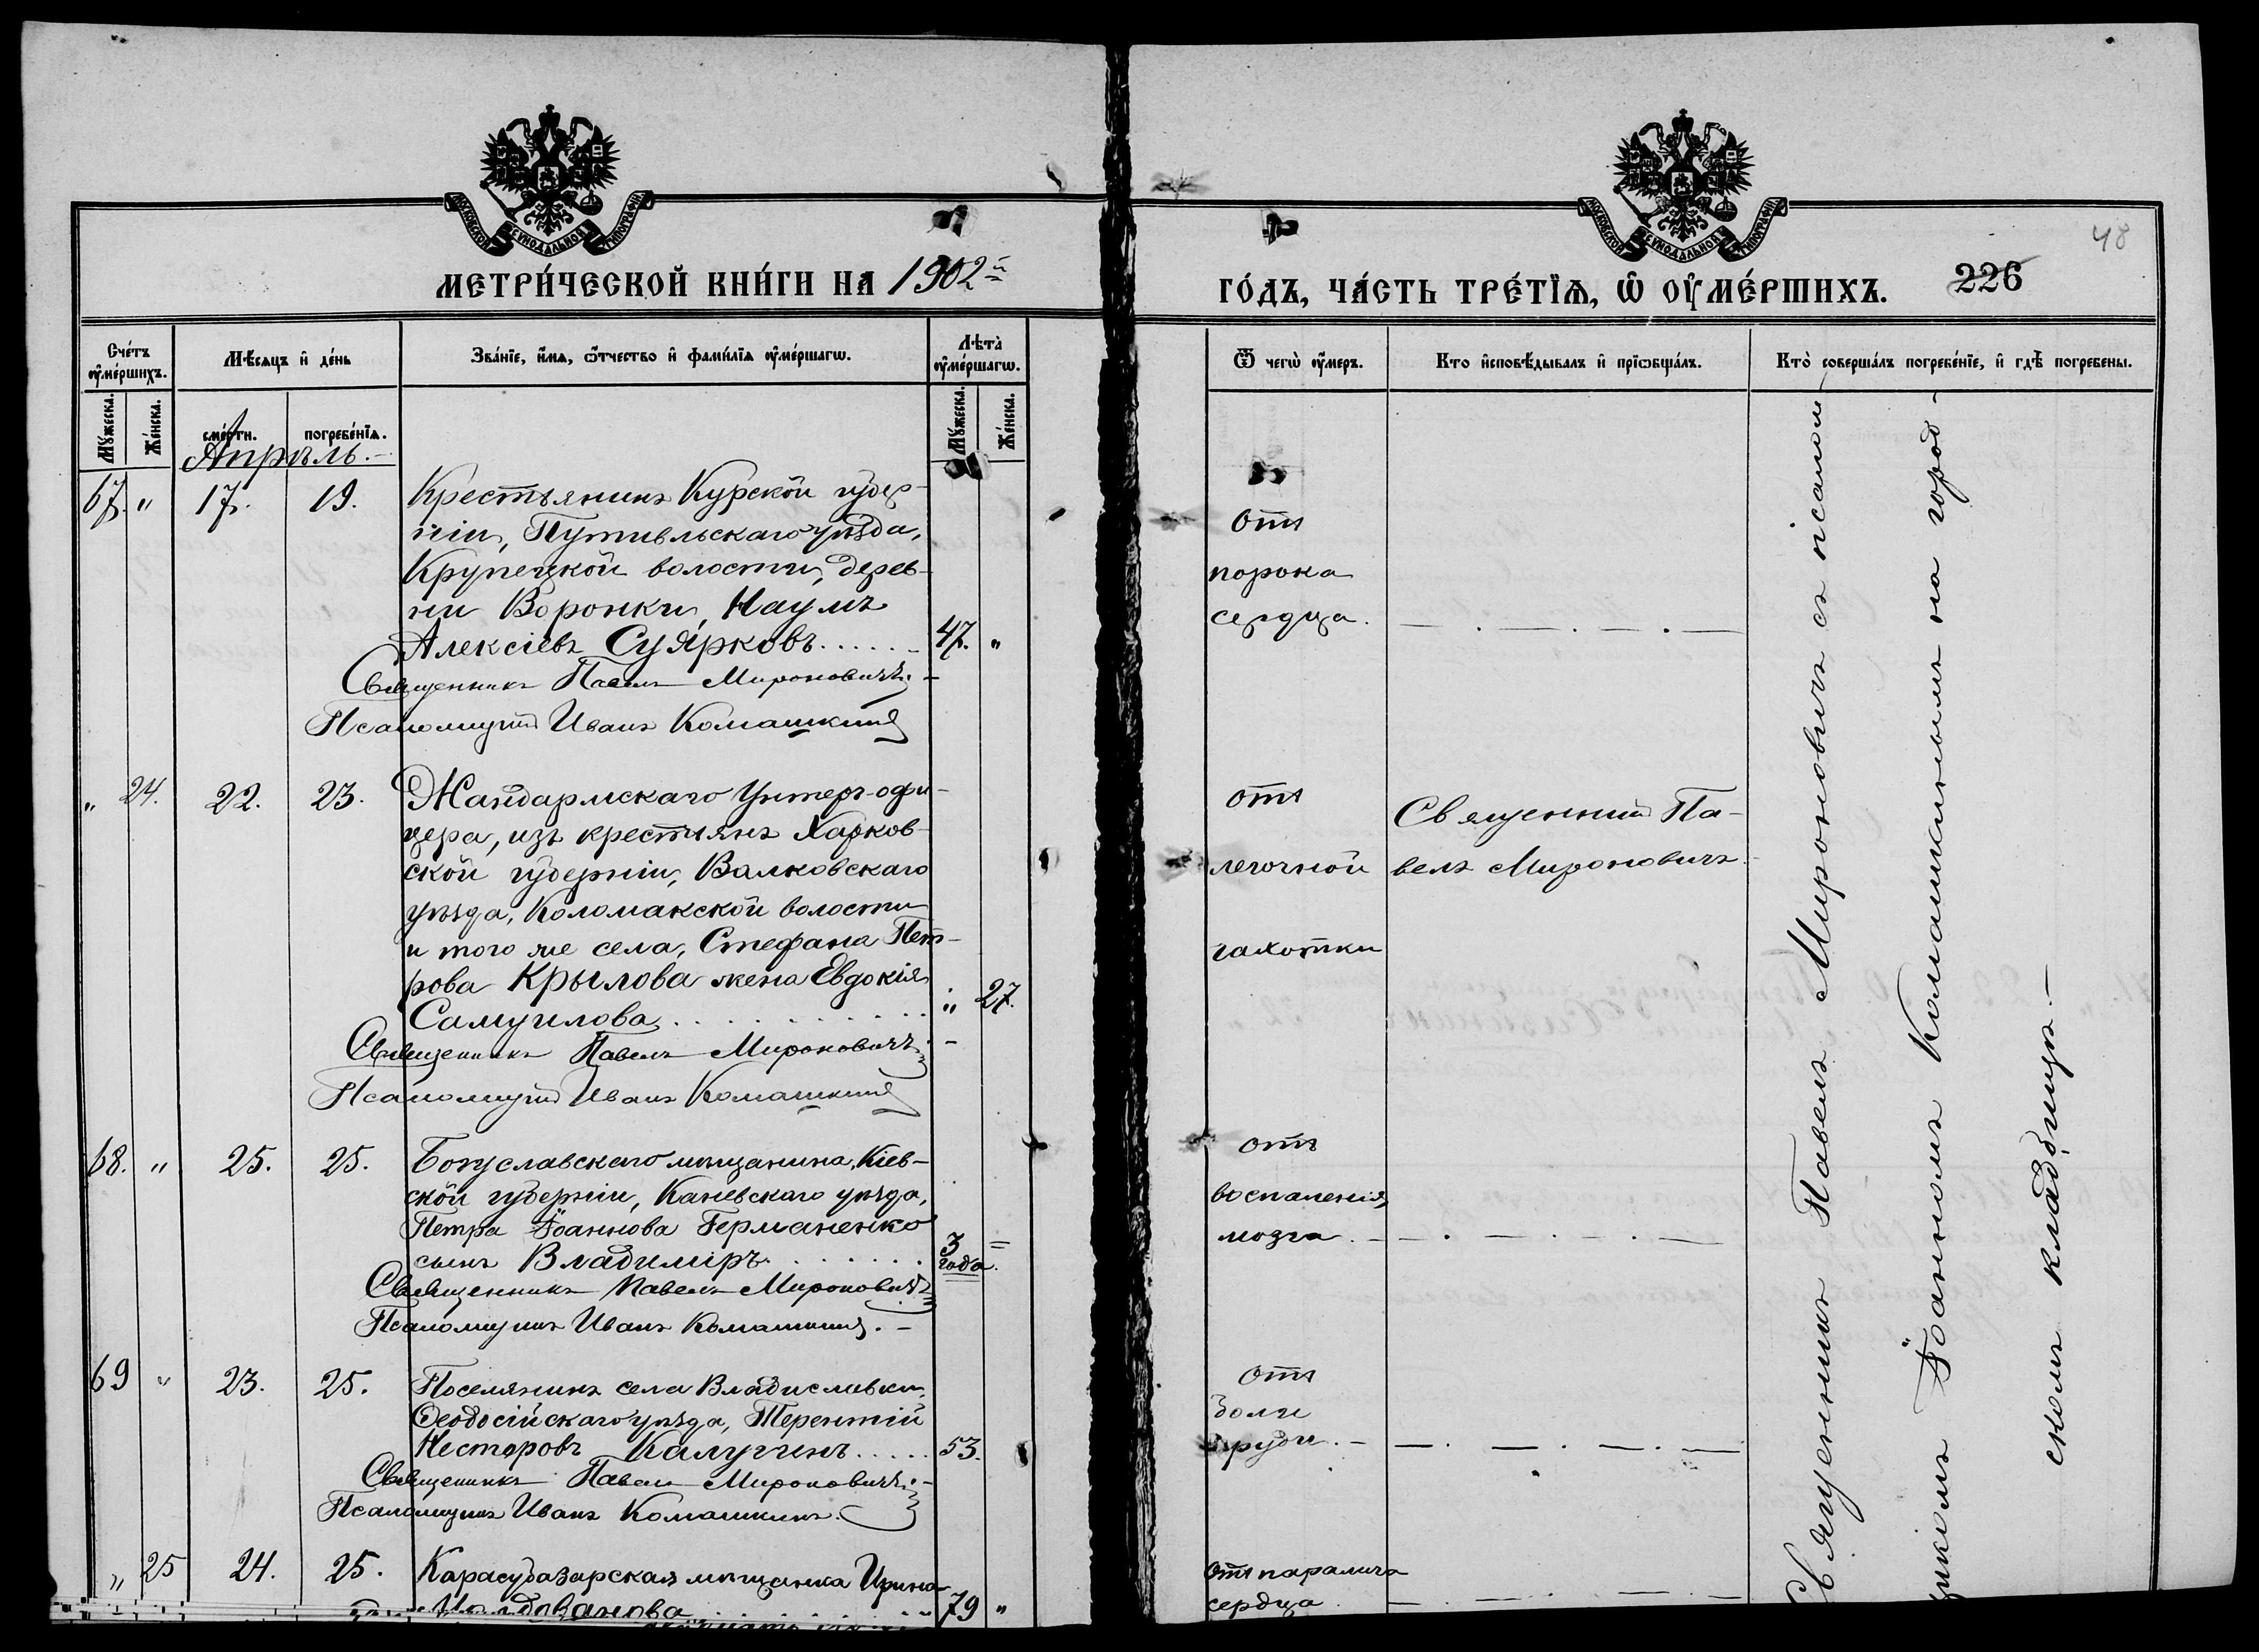 МОСКОВСКОЙ СѴНОДАЛЬНОЙ ТИПОГРАФІИ
МЕТРИ́ЧЕСКОЙ КНИ́ГИ НА 1902й
Сче́тъ оу҆ме́ршихъ.
Мѣ́сяцъ и҆ де́нь
Зва́нїе, и҆́мя, ѻ҆́тчество и҆ фамі́лїя оу҆ме́ршагѡ.
Лѣ́та оу҆ме́ршагѡ.
Мꙋ́жеска.
Же́нска.
сме́рти.
погребе́нїѧ.
Мꙋ́жеска.
Же́нска.
Апрѣль.-
67. " 17. 19. Крестьянинъ Курской губер-
ніи, Путивльскаго уѣзда,
Крупецкой волости, дерев-
ни Воронки, Наумъ
Алексіевъ Суярковъ...... 47. "
Священникъ Павелъ Мироновичъ.-
Псаломщикъ Иванъ Комашкинъ
" 24. 22. 23. Жандармскаго Унтеръ-офи-
цера, изъ крестьянъ Харков-
ской губерніи, Валковскаго
уѣзда, Коломакской волости
и того же села, Стефана Пет-
рова Крылова жена Евдокія
Самуилова............ " 27.
Священникъ Павелъ Мироновичъ.-
Псаломщикъ Иванъ Комашкинъ
68. " 25. 25. Богуславскаго мѣщанина, Кіев-
ской губерніи, Каневскаго уѣзда,
Петра Іоаннова Германенко
сынъ Владиміръ....... 3 года. "
Священникъ Павелъ Мироновичъ
Псаломщикъ Иванъ Комашкинъ.-
69 " 23. 25. Поселянинъ села Владиславки,
Ѳеодосійскаго уѣзда, Терентій
Несторовъ Калугинъ..... 53.
Священникъ Павелъ Мироновичъ.-
Псаломщикъ Иванъ Комашкинъ.
" 25 24. 25. Карасубазарская мѣщанка Ирина
79 "
МОСКОВСКОЙ СѴНОДАЛЬНОЙ ТИПОГРАФІИ
48
ГО́ДЪ, ЧА́СТЬ ТРЕ́ТЇѦ, Ѡ҆ ОУ҆МЕ́РШИХЪ. 226
Ѿ чегѡ̀ оу҆́меръ.
Кто̀ и҆сповѣ́дывалъ и҆ прїѡбща́лъ.
Кто̀ соверша́лъ погребе́нїе, и҆ гдѣ̀ погребены.
отъ
порока
сердца.
отъ
легочной
чахотки
Священникъ Па-
велъ Мироновичъ
отъ
воспаленія
мозга.-
отъ
боли
груди.-
отъ паралича
сердца
Священникъ Павелъ Мироновичъ съ псалом-
щикомъ Іоанномъ Комашкинымъ на город-
скомъ кладбищѣ.-